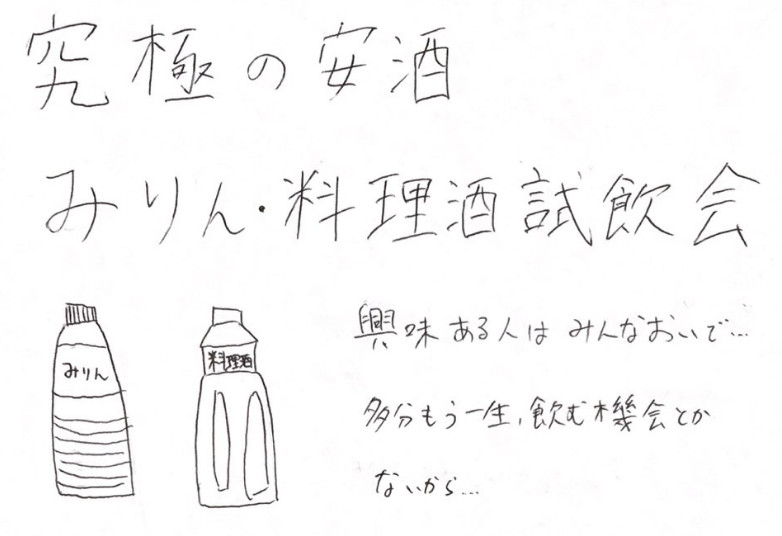 究極の安酒
みりん・料理酒試飲会
みりん
料理酒
興味ある人はみんなおいで…
多分もう一生、飲む機会とか
ないから…